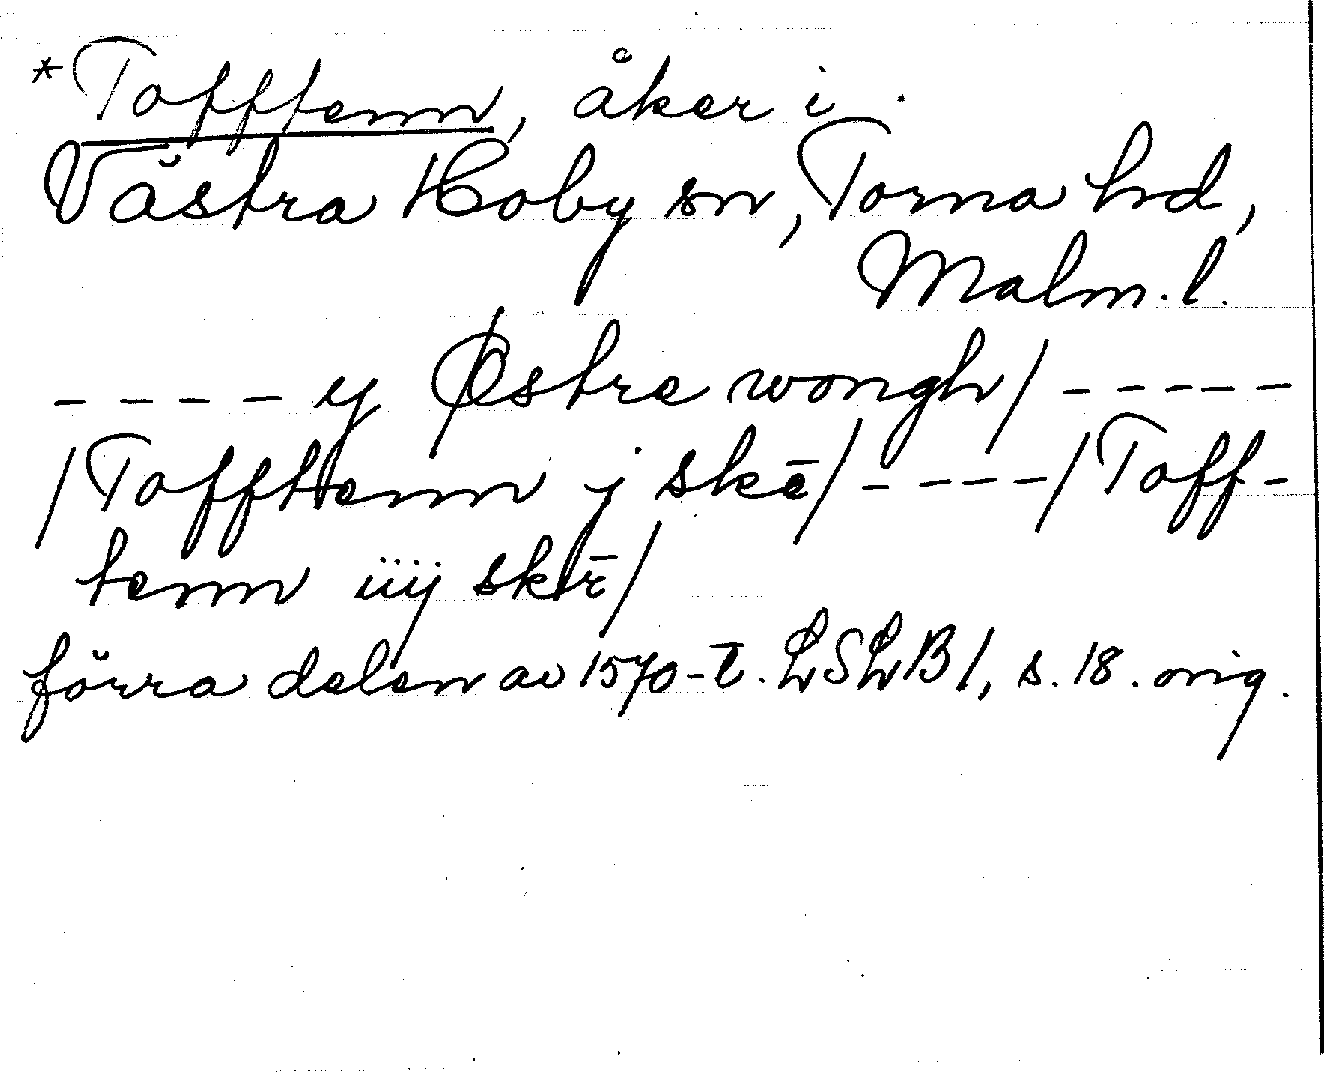 *Tofftenn, åker i
Västra Hoby sn, Torna hrd,
Malm. l.
- - - - - y Østre wongh/ - - - - -
/Tofftenn j skē/ - - - - /Toff-
tenn iiij skē/
förra delen av 1570-t. LSLB I, s. 18. orig.